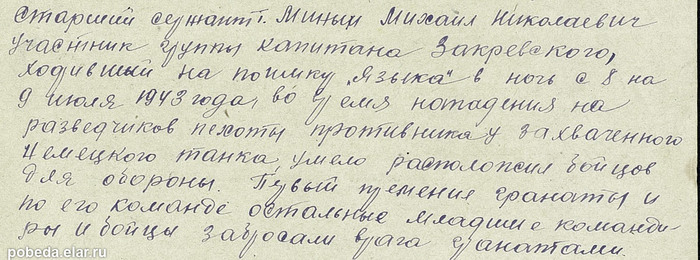 Старший сержант Миньш Михаил Николаевич
участник группы капитана Закревского,
ходивший на поимку „языка" в ночь с 8 на
9 июля 1943 года, во время нападения на
разведчиков пехоты противника у захваченного
немецкого танка, умело расположил бойцов
для обороны. Первый применил гранаты и
по его команде остальные младшие команди-
ры и бойцы забросали врага гранатами.
pobeda.elar.ru